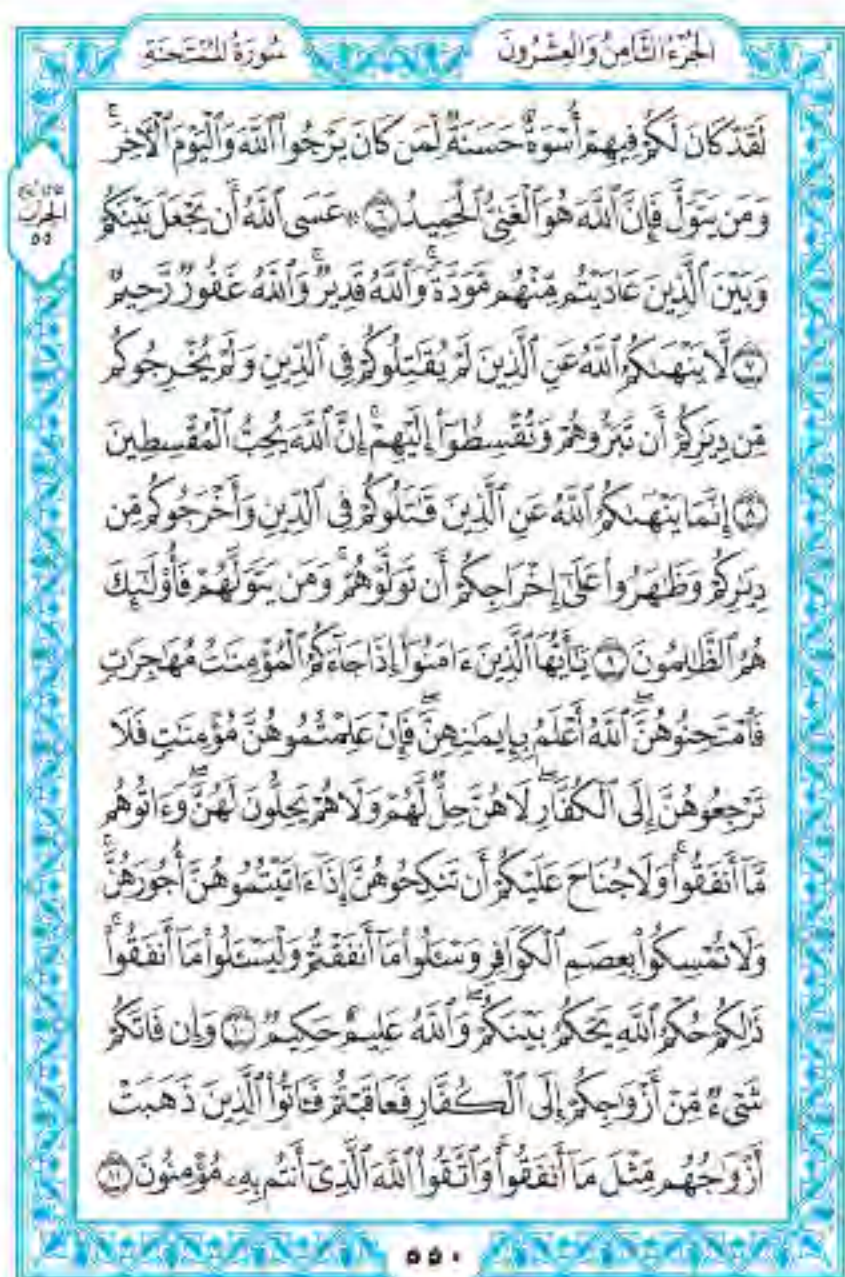 الجزء الثامن والعشرون
سورة الممتحنة
لَقَدْ كَانَ لَكُمْ فِيهِمْ أُسْوَةٌ حَسَنَةٌ لِّمَن كَانَ يَرْجُوا۟ ٱللَّهَ وَٱلْيَوْمَ ٱلْـَٔاخِرَ ۚ
وَمَن يَتَوَلَّ فَإِنَّ ٱللَّهَ هُوَ ٱلْغَنِىُّ ٱلْحَمِيدُ ٦ ۞ عَسَى ٱللَّهُ أَن يَجْعَلَ بَيْنَكُمْ
وَبَيْنَ ٱلَّذِينَ عَادَيْتُم مِّنْهُم مَّوَدَّةً ۚ وَٱللَّهُ قَدِيرٌ ۚ وَٱللَّهُ غَفُورٌ رَّحِيمٌ
٧ لَّا يَنْهَىٰكُمُ ٱللَّهُ عَنِ ٱلَّذِينَ لَمْ يُقَـٰتِلُوكُمْ فِى ٱلدِّينِ وَلَمْ يُخْرِجُوكُم
مِّن دِيَـٰرِكُمْ أَن تَبَرُّوهُمْ وَتُقْسِطُوٓا۟ إِلَيْهِمْ ۚ إِنَّ ٱللَّهَ يُحِبُّ ٱلْمُقْسِطِينَ
٨ إِنَّمَا يَنْهَىٰكُمُ ٱللَّهُ عَنِ ٱلَّذِينَ قَـٰتَلُوكُمْ فِى ٱلدِّينِ وَأَخْرَجُوكُم مِّن
دِيَـٰرِكُمْ وَظَـٰهَرُوا۟ عَلَىٰٓ إِخْرَاجِكُمْ أَن تَوَلَّوْهُمْ ۚ وَمَن يَتَوَلَّهُمْ فَأُو۟لَـٰٓئِكَ
هُمُ ٱلظَّـٰلِمُونَ ٩ يَـٰٓأَيُّهَا ٱلَّذِينَ ءَامَنُوٓا۟ إِذَا جَآءَكُمُ ٱلْمُؤْمِنَـٰتُ مُهَـٰجِرَٰتٍ
فَٱمْتَحِنُوهُنَّ ۖ ٱللَّهُ أَعْلَمُ بِإِيمَـٰنِهِنَّ ۖ فَإِنْ عَلِمْتُمُوهُنَّ مُؤْمِنَـٰتٍ فَلَا
تَرْجِعُوهُنَّ إِلَى ٱلْكُفَّارِ ۖ لَا هُنَّ حِلٌّ لَّهُمْ وَلَا هُمْ يَحِلُّونَ لَهُنَّ ۖ وَءَاتُوهُم
مَّآ أَنفَقُوا۟ ۚ وَلَا جُنَاحَ عَلَيْكُمْ أَن تَنكِحُوهُنَّ إِذَآ ءَاتَيْتُمُوهُنَّ أُجُورَهُنَّ ۚ
وَلَا تُمْسِكُوا۟ بِعِصَمِ ٱلْكَوَافِرِ وَسْـَٔلُوا۟ مَآ أَنفَقْتُمْ وَلْيَسْـَٔلُوا۟ مَآ أَنفَقُوا۟ ۚ
ذَٰلِكُمْ حُكْمُ ٱللَّهِ يَحْكُمُ بَيْنَكُمْ ۚ وَٱللَّهُ عَلِيمٌ حَكِيمٌ ١٠ وَإِن فَاتَكُمْ
شَىْءٌ مِّنْ أَزْوَٰجِكُمْ إِلَى ٱلْكُفَّارِ فَعَاقَبْتُمْ فَـَٔاتُوا۟ ٱلَّذِينَ ذَهَبَتْ
أَزْوَٰجُهُم مِّثْلَ مَآ أَنفَقُوا۟ ۚ وَٱتَّقُوا۟ ٱللَّهَ ٱلَّذِىٓ أَنتُم بِهِۦ مُؤْمِنُونَ ١١
الحزب
٥٥
٥٥٠